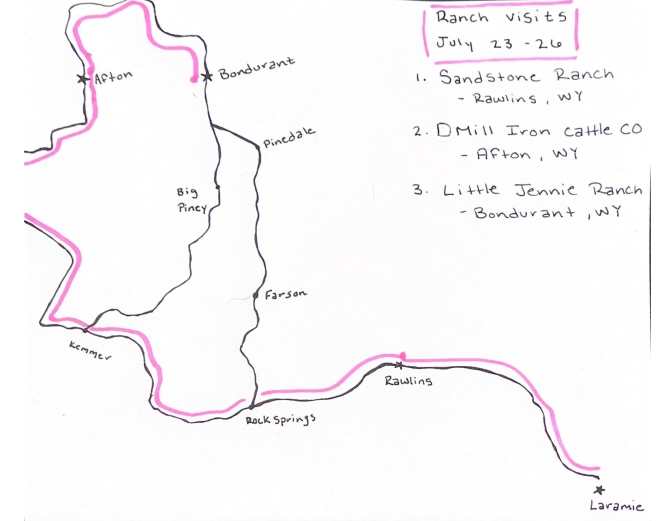 Ranch visits
July 23 - 26
1. Sandstone Ranch
- Rawlins, WY
2. DMill Iron Cattle CO
- Afton, WY
3. Little Jennie Ranch
- Bondurant, WY
Afton
Bondurant
Pinedale
Big
Piney
Farson
Kemmer
Rawlins
Rock Springs
Laramie